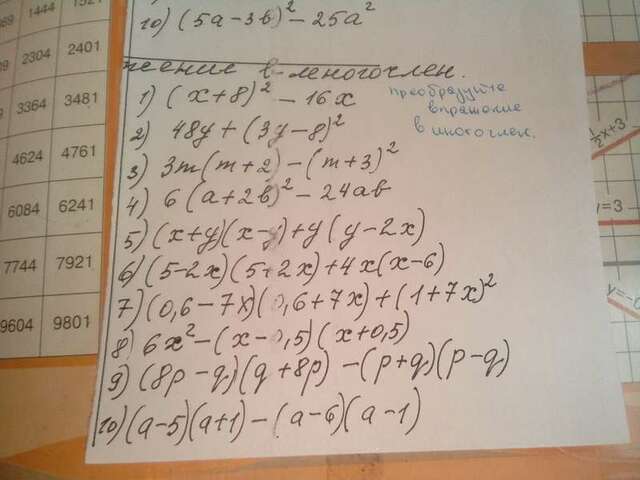 10) (5a-3b)² - 25a²
жение в многочлен.
1) (x+8)² - 16x
2) 48y + (3y-8)²
3) 3m(m+2) - (m+3)²
4) 6(a+2b)² - 24ab
5) (x+y)(x-y)+y(y-2x)
6) (5-2x)(5+2x)+4x(x-6)
7) (0,6-7x)(0,6+7x)+(1+7x)²
8) 6x²-(x-0,5)(x+0,5)
9) (8p-q)(q+8p)-(p+q)(p-q)
10) (a-5)(a+1)-(a-6)(a-1)
преобразуйте
в многочлен.
1444
2304 2401
3364 3481
4624 4761
6084 6241
7744 7921
9604 9801
x+3
y=3